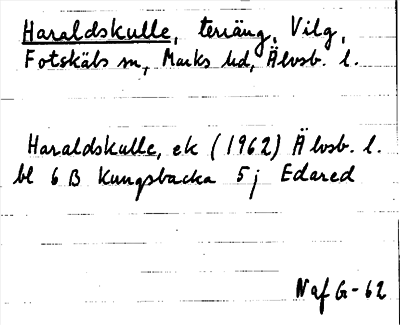 Haraldskulle, terräng, Vilg,
Fotskäls sn, Marks hd, Älvsb. l.
Haraldskulle, ek (1962) Älvsb. l.
bl 6 B Kungsbacka 5 j Edared
Naf G-62